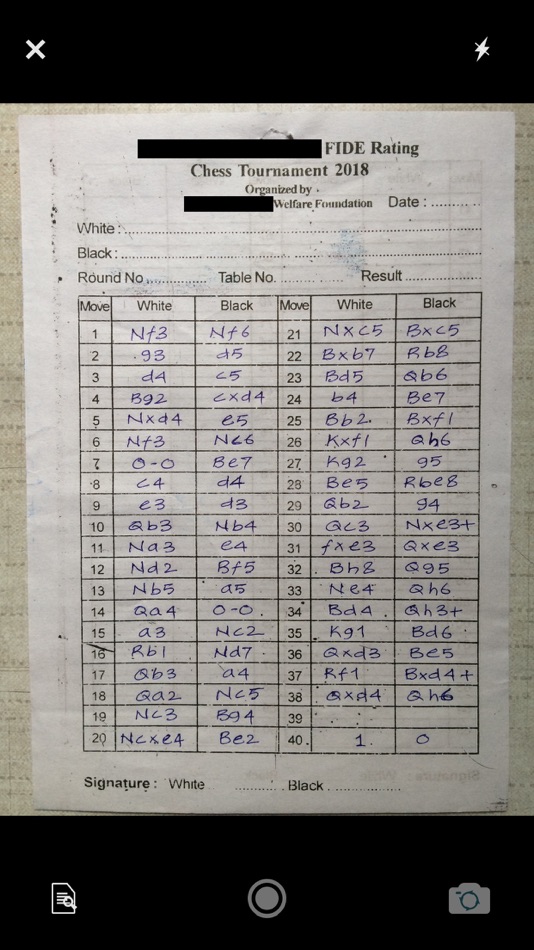 FIDE Rating
Chess Tournament 2018
Organized by
Welfare Foundation Date :
White :
Black :
Round No. Table No. Result
Move White Black Move White Black
1 Nf3 Nf6 21 Nxc5 Bxc5
2 g3 d5 22 Bxb7 Rb8
3 d4 c5 23 Bd5 Qb6
4 Bg2 cxd4 24 b4 Be7
5 Nxd4 e5 25 Bb2 Bxf1
6 Nf3 Nc6 26 Kxf1 Qh6
7 0-0 Be7 27 Kg2 g5
8 c4 d4 28 Be5 Rbe8
9 e3 d3 29 Qb2 g4
10 Qb3 Nb4 30 Qc3 Nxe3+
11 Na3 e4 31 fxe3 Qxe3
12 Nd2 Bf5 32 Bh8 Qg5
13 Nb5 a5 33 Ne4 Qh6
14 Qa4 0-0 34 Bd4 Qh3+
15 a3 Nc2 35 Kg1 Bd6
16 Rb1 Nd7 36 Qxd3 Be5
17 Qb3 a4 37 Rf1 Bxd4+
18 Qa2 Nc5 38 Qxd4 Qh6
19 Nc3 Bg4 39
20 Ncxe4 Be2 40 1 0
Signature : White Black